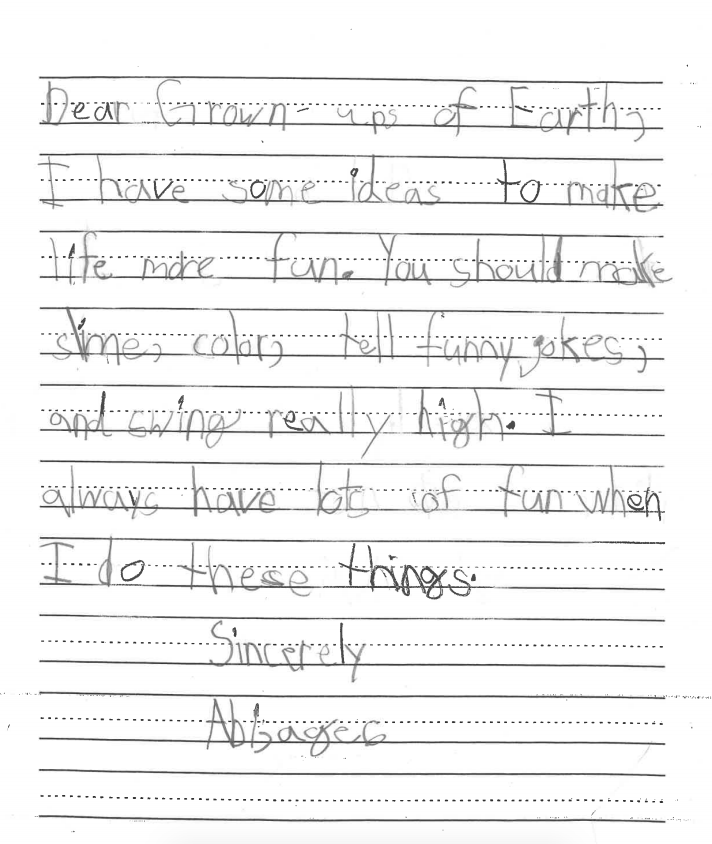 Dear Grown-ups of Earth,
I have some ideas to make
life more fun. You should make
slime, color, tell funny jokes,
and swing really high. I
always have lots of fun when
I do these things.
Sincerely